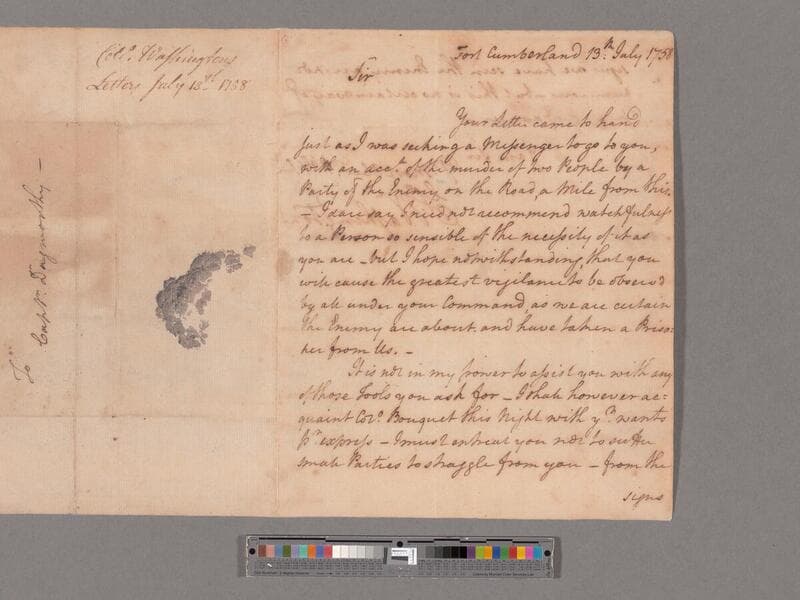 Colo. Washingtons
Letter July 13th. 1758
To Captn. Dagworthy —
Fort Cumberland 13.th July 1758
Sir
Your Letter came to hand
just as I was seeking a Messenger to go to you,
with an acct. of the murder of two People by a
Party of the Enemy on the Road, a Mile from this.
— I dare say I need not recommend watchfulness
to a Person so sensible of the necessity of it as
you are — but I hope notwithstanding, that you
will cause the greatest vigilance to be observ'd
by all under your Command, as we are certain
the Enemy are about and have taken a Priso-
ner from Us. —
It is not in my power to assist you with any
of those Tools you ask for — I shall however ac=
quaint Colo. Bouquet this Night with yr. wants
pr. express — I must entreat you not to suffer
small Parties to straggle from you — from the
signs